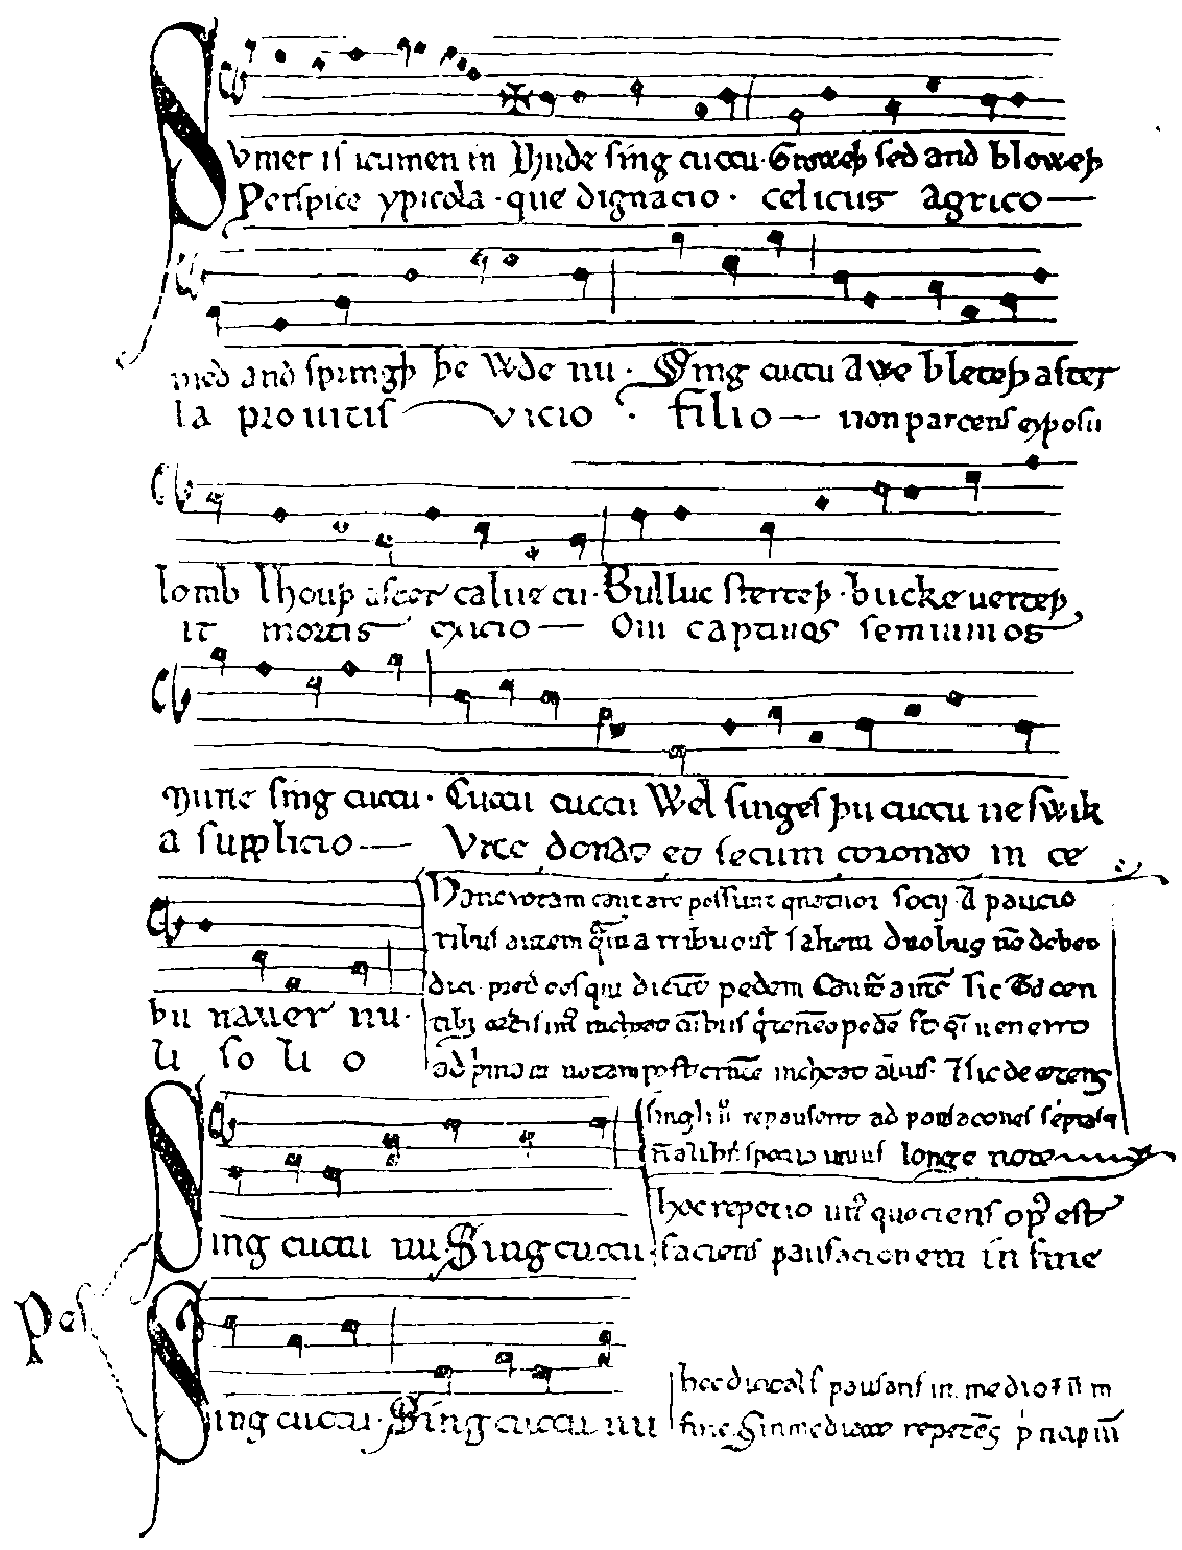 Svmer is icumen in Lhude sing cuccu. Groweþ sed and bloweþ
Perspice xpicola. que dignacio. celicus agrico—
med and springþ þe wde nu. Sing cuccu Awe bleteþ after
la pro uitis vicio. filio— non parcens exposu
lomb lhouþ after calue cu. Bulluc sterteþ. bucke uerteþ
it mortis exicio— Qui captiuos semiuiuos
Murie sing cuccu. Cuccu cuccu Wel singes þu cuccu ne swik
a supplicio— Vite donat et secum coronat in ce
Hanc rotam cantare possunt quatuor socij. A paucio
ribus autem quam a tribus uel saltem duobus non debet
þu nauer nu.
dici. preter eos qui dicunt pedem. Canitur autem sic. Tacen
tibus ceteris unus inchoat cum hiis qui tenent pedem. Et cum uenerit
li so li o
ad primam notam post crucem inchoat alius. et sic de ceteris
singuli uero repausent ad pausaciones scriptas et
non alibi spacio unius longe note
Sing cuccu nu. Sing cuccu.
hoc repetit unus quociens opus est
faciens pausacionem in fine
Pes
Sing cuccu. Sing cuccu nu
hoc dicit alius pausans in medio et non in
fine. Sed inmediate repetens principium